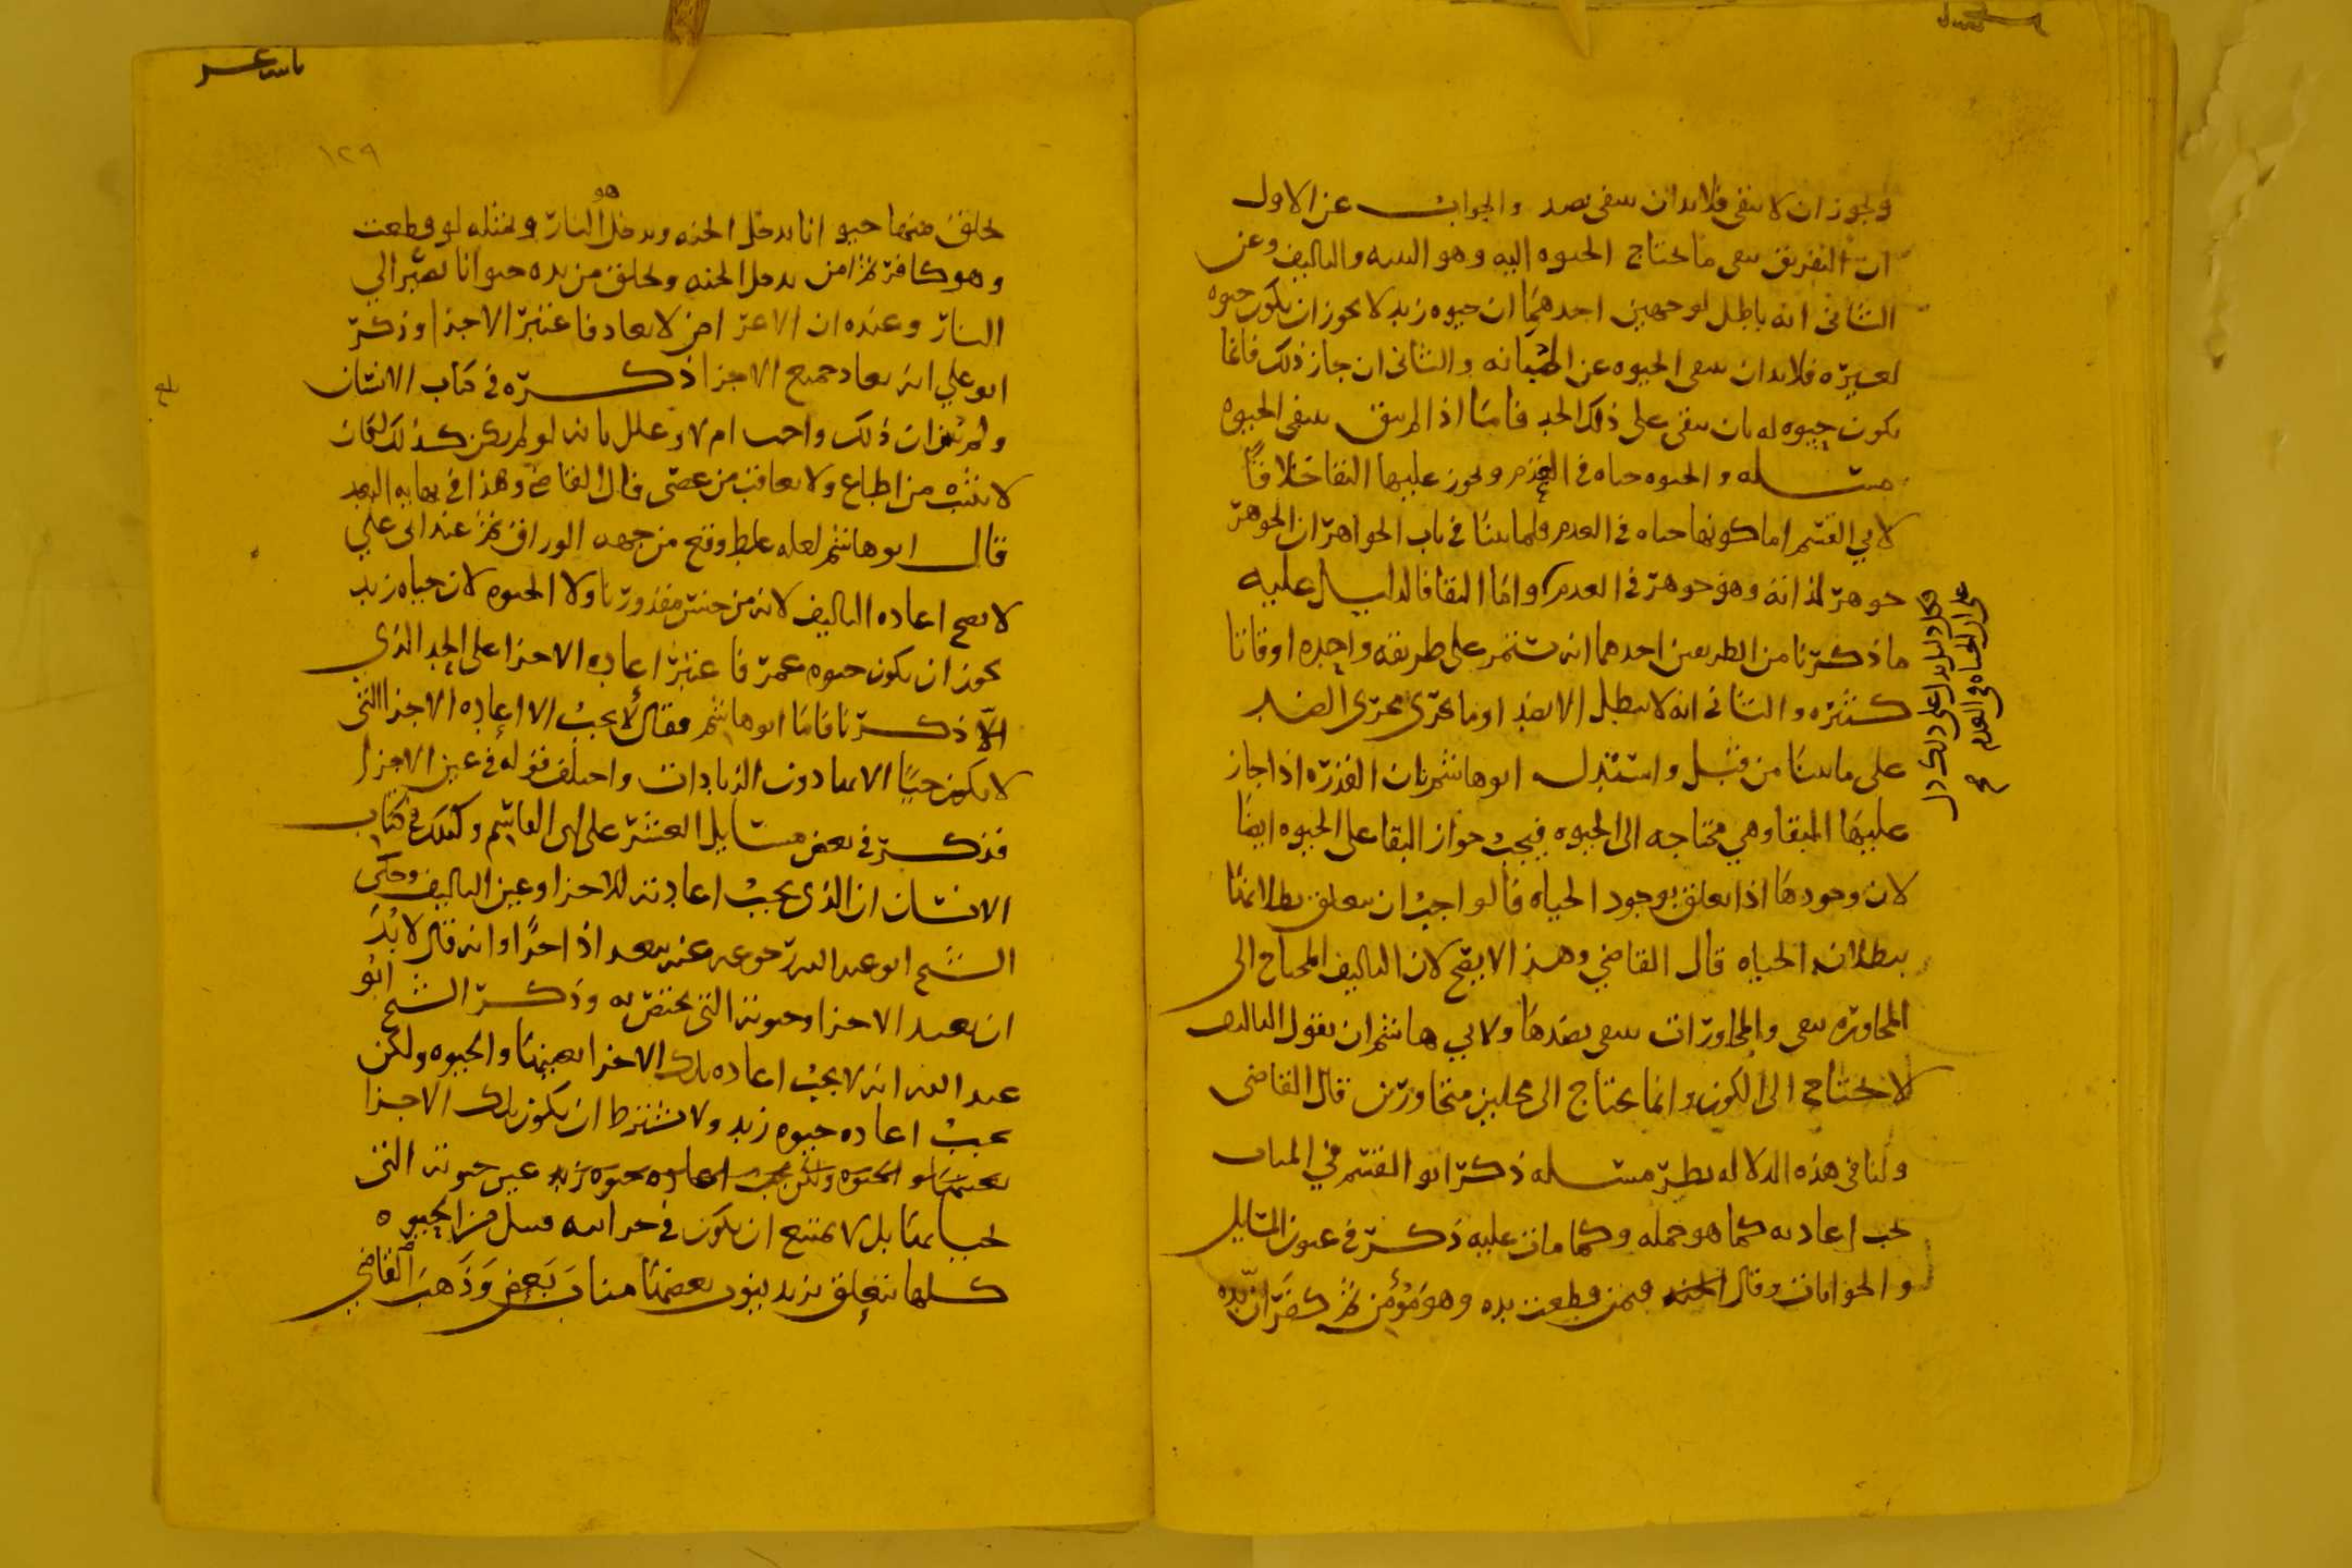 ويجوز ان لا ينتفى فلابد ان ينتفى بضد والجواب عن الاول
ان التفريق ينفى ما يحتاج الحيوه اليه وهو البنيه والتاليف وعن
الثانى انه باطل لوجهين احدهما ان حيوه زيد لا يجوز ان يكون حيوه
لغيره فلابد ان ينتفى الحيوه عن والثانى ان جاز ذلك فانما
يكون حيوه له بان يبقى على ذلك الحد فاما اذا لم يبق ينتفى الحيوه
مسله والحيوه حياه فى العدم ويجوز عليها البقا خلافًا
لابي القسم اما كونها حياه فى العدم فلما بينا فى باب الجواهر ان الجوهر
جوهر لذاته وهو جوهر فى العدم واما البقا فالدليل عليه
ما ذكرنا من الطريقين احدهما انه يستمر على طريقه واحده اوقاتا
كثيره والثانى انه لا يبطل الا بضد او ما يجرى مجرى الضد
على ما بينا من قبل واستدل ابو هاشم بان القدره اذا جاز
عليها البقا وهي محتاجه الى الحيوه فيجب جواز البقا على الحيوه ايضا
لان وجودها اذا تعلق بوجود الحياه فالواجب ان يتعلق بطلانها
ببطلان الحياه قال القاضي وهذا لا يصح لان التاليف المحتاج الى
المجاوره يبقى والمجاورات ينتفى بضدها ولابي هاشم ان يقول التاليف
لا يحتاج الى الكون وانما يحتاج الى محلين متجاورين قال القاضى
ولنا فى هذه الدلاله نظر مسله ذكر ابو القسم فى
يجب اعادته كما هو جمله وكما مات عليه ذكره فى عيون المسايل
والجوابات وقال فيمن قطعت يده وهو مؤمن ثم كفر ان يده
فى العدم
١٢٩
يخلق منها حيوانا يدخل الجنه ويدخل هو النار ومثله لو قطعت
وهو كافر ثم امن يدخل الجنه ويخلق من يده حيوانا يصير الي
النار وعنده ان الاعراض لا يعاد فاعتبر الاجزا وذكر
ابو علي انه يعاد جميع الاجزا ذكره فى كتاب الانسان
ولم يبين ان ذلك واجب ام لا وعلل بانه لو لم يكن كذلك لكان
لا يثيب من اطاع ولا يعاقب من عصى قال القاضي وهذا فى نهايه البعد
قال ابو هاشم لعله غلط وقع من جهه الوراق ثم عند ابى علي
لا يصح اعاده التاليف لانه من جنس مقدورنا ولا الحيوه لان حياه زيد
يجوز ان يكون حيوه عمرو فاعتبر اعاده الاجزا على الحد الذي
ذكرنا فاما ابو هاشم فقال لا يجب الا اعاده الاجزا التى
لا يكون حيًا الا بها دون الزيادات واختلف قوله فى عين الاجزا
فذكر فى بعض مسايل العشر على ابى القاسم وكذلك فى كتاب
الانسان ان الذى يجب اعادته للاجزا وعين التاليف وحكى
الشيخ ابو عبد الله رجوعه عنه بعد اذ وانه قال لا بد
ان يعيد الاجزا وحيوته التى يختص به وذكر الشيخ ابو
عبد الله انه لا يجب اعاده تلك الاجزا بعينها والحيوه ولكن
يجب اعاده حيوه زيد ولا يشترط ان يكون تلك الاجزا
بعينها والحيوه ولكن يجب اعاده حيوه زيد عين حيوته التى
يحيا بها بل لا يمتنع ان يكون فى من الحيوه
كلها تتعلق بزيد ينوب بعضها مناب بعض وذهب القاضي